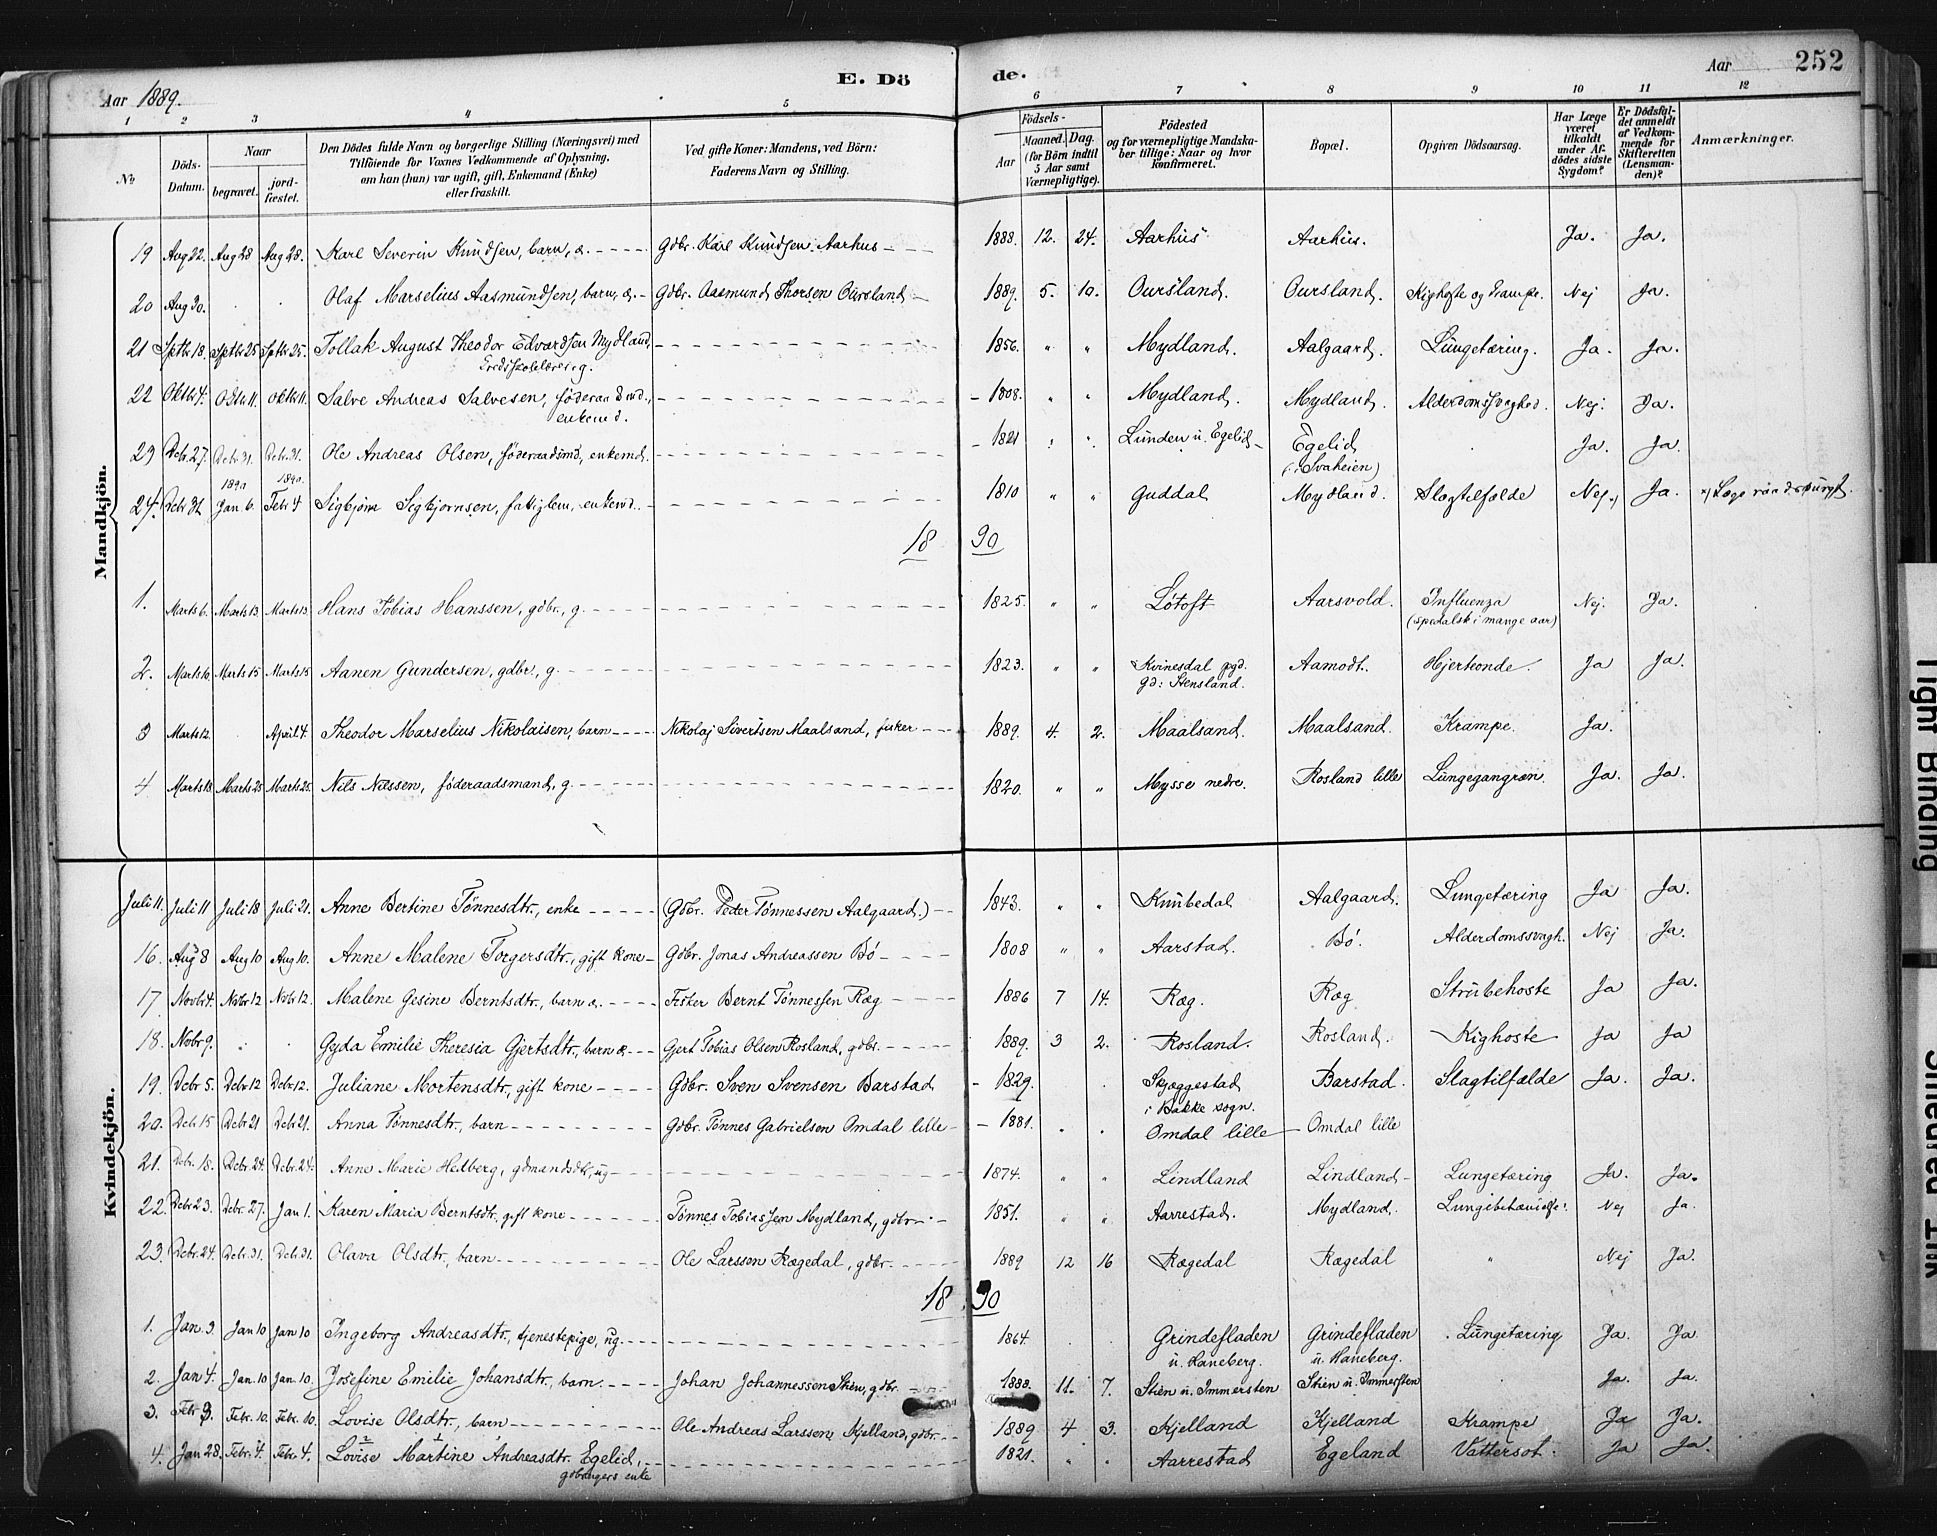 Aar 1889. E. Dö de. Aar 252
1 2 3 4 5 6 7 8 9 10 11 12
No Döds-Datum. Naar begravet. jordfæstet. Den Dödes fulde Navn og borgerlige Stilling (Næringsvei) med Tilföiende for Voxnes Vedkommende af Oplysning, om han (hun) var ugift, gift, Enkemand (Enke) eller fraskilt. Ved gifte Koner: Mandens, ved Börn: Faderens Navn og Stilling. Födsels- Aar Maaned. Dag. (for Börn indtil 5 Aar samt Værnepligtige). Födested og for værnepligtige Mandskaber tillige: Naar og hvor konfirmeret. Bopæl. Opgiven Dödsaarsag. Har Læge været tilkaldt under Afdödes sidste Sygdom? Er Dödsfaldet anmeldt af Vedkommende for Skifteretten (Lensmanden)? Anmærkninger.
Mandkjön.
19 Aug 22. Aug 28 Aug 28. Karl Severin Knudsen, barn, æ. Gdbr. Karl Knudsen Aarhus 1888. 12. 24. Aarhus Aarhus. Ja. Ja.
20 Aug 30. Olaf Marselius Aasmundsen, barn, æ. Gdbr. Aasmund Thorsen Oursland 1889. 5. 10. Oursland. Oursland. Kighoste og Krampe. Nej Ja.
21 Sptbr 18. Sptbr 25 Sptbr 25. Tollak August Theodor Edvardsen Mydland, 1856. " " Mydland. Aalgaard. Lungetæring. Ja. Ja.
22 Oktbr 4. Oktbr 11. Oktbr 11. Salve Andreas Salvesen, föderaadsmd., enkemd. 1808. " " Mydland. Mydland. Alderdomssvaghed. Nej. Ja.
23 Dcbr. 27. Dcbr 31. Dcbr. 31. Ole Andreas Olsen, föderaadsmd, enkemd. 1821 " " Lunden u. Egelid Egelid (i Svaheien) Ja. Ja.
1890 1890
24. Dcbr 31. Jan 6. Febr 4 Sigbjørn Sigbjørnsen, fattiglem, enkemd. 1810 " " Guddal Mydland. Slagtilfælde Nej x) Ja. x) Læge raadspurgt.
18 90
1. Marts 6. Marts 13. Marts 13. Hans Tobias Hanssen, gdbr., g. 1825. " " Løtoft Aarsvold. Influenza (spedalsk i mange aar) Nej. Ja.
2. Marts 10 Marts 15 Marts 15 Aanen Gundersen, gdbr, g. 1823. " " Kvinesdal pgd. gd: Stensland. Aamodt. Hjerteonde. Ja Ja.
3 Marts 12. April 4. Theodor Marselius Nikolaisen, barn Nikolaj Sivertsen Maalsand, fisker 1889. 4. 2. Maalsand. Maalsand. Krampe. Ja.
4 Marts 18. Marts 25 Marts 25. Nils Nilssen, föderaadsmand, g. 1820. " " Mysse nedre. Rosland lille Lungegangræn. Ja. Ja.
Kvindekjön.
Juli 11. Juli 11 Juli 18 Juli 21. Anne Bertine Tønnesdtr., enke (Gdbr. Peder Tønnessen Aalgaard.) 1843. " " Knubedal Aalgaard. Lungetæring Ja Ja.
16. Aug 8 Aug 10 Aug 10. Anne Malene Torgersdtr., gift kone Gdbr. Jonas Andreassen Bö 1808 " " Aarstad. Bö. Alderdomssvagh. Nej Ja.
17 Novbr 4. Nvbr 12 Nvbr 12. Malene Gesine Berntsdtr., barn æ. Fisker Bernt Tönnessen Ræg 1886 7 14. Ræg. Ræg Strubehoste Ja Ja.
18. Nvbr 9. Gyda Emilie Theresia Gjertsdtr., barn æ. Gjert Tobias Olsen Rosland, gdbr. 1889. 3 2. Rosland. Rosland. Kighoste Ja Ja
19. Dcbr. 5. Dcbr 12 Dcbr. 12. Juliane Mortensdtr., gift kone Gdbr. Sven Svensen Barstad 1829. Skjæggestad i Bakke sogn. Barstad. Slagtilfælde Ja. Ja.
20. Dcbr. 15 Dcbr 21 Dcbr 21. Anna Tønnesdtr., barn Gdbr. Tønnes Gabrielsen Omdal lille 1881. " " Omdal lille Omdal lille
21. Dcbr. 18. Dcbr. 24. Dcbr. 24. Anne Marie Hedberg, gdmandsdtr, ug 1874. " " Lindland Lindland Lungetæring Ja. Ja.
22. Dcbr 23. Dcbr. 27. Jan 1. Karen Maria Berntsdtr. gift kone Tønnes Tobiassen Mydland, gdbr. 1851. " " Aarrestad. Mydland. Nej Ja.
23. Dcbr. 24. Dcbr. 31. Dcbr. 31. Olava Olsdtr., barn Ole Larssen Rægedal, gdbr. 1889 12 16 Rægedal Rægedal " Nej Ja.
18 90
1. Jan 3. Jan 10 Jan 10 Ingeborg Andreasdtr., tjenestepige, ug 1864. Grindefladen u. Haneberg. Grindefladen u. Haneberg. Lungetæring Ja. Ja
2. Jan 4. Jan. 10 Jan. 10. Josefine Emilie Johansdtr, barn. Johan Johannessen Stien, gdbr. 1888. 11. 7. Stien u. Immersten Stien u. Immersten Ja. Ja.
3. Febr 3. Febr. 10. Febr. 10. Lovise Olsdtr., barn Ole Andreas Larssen Kjelland, gdbr. 1889 4 3. Kjelland Kjelland Krampe Ja Ja.
4. Jan 28. Febr. 4. Febr. 4. Lovise Martine Andreasdtr. Egelid, gdbrugers enke 1821. " " Aarrestad Egeland Vattersot. Ja Ja.
Tight Binding
Smeared Ink